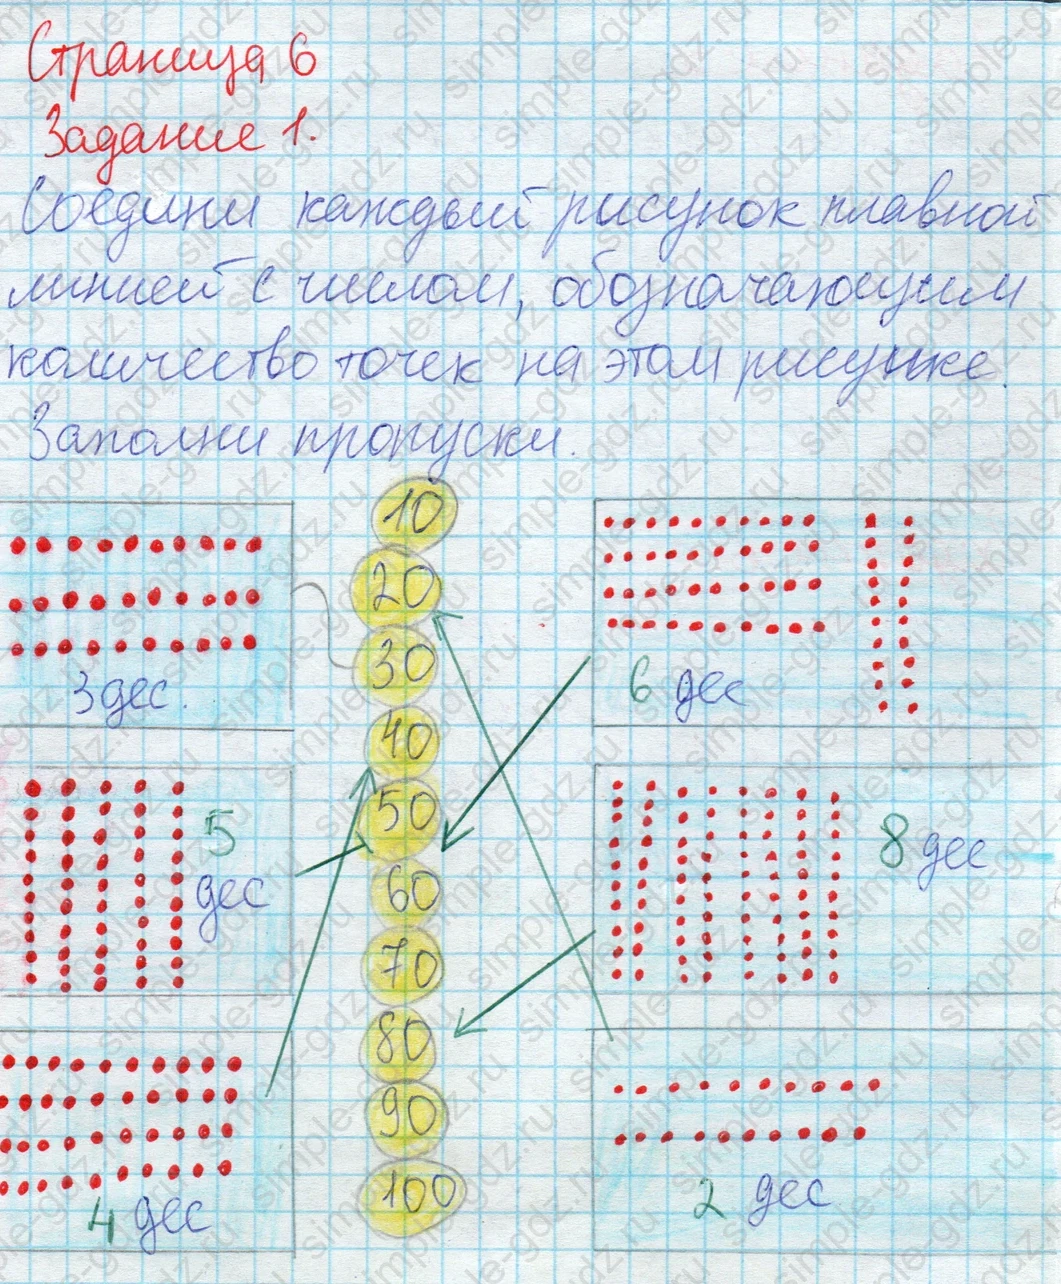 Страница 6
Задание 1.
Соедини каждый рисунок плавной
линией с числом, обозначающим
количество точек на этом рисунке.
Заполни пропуски.
10
20
30
40
50
60
70
80
90
100
3 дес.
5
дес
4 дес
6 дес
8 дес
2 дес
simple-gdz.ru